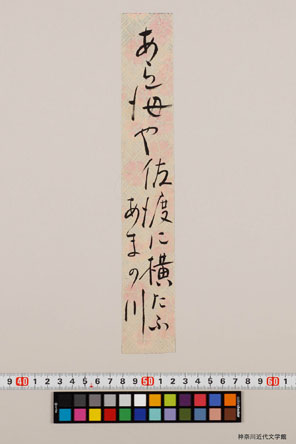 あら海や佐渡に横たふ
あまの川
9 40 1 2 3 4 5 6 7 8 9 50 1 2 3 4 5 6 7 8 9 60 1
神奈川近代文学館